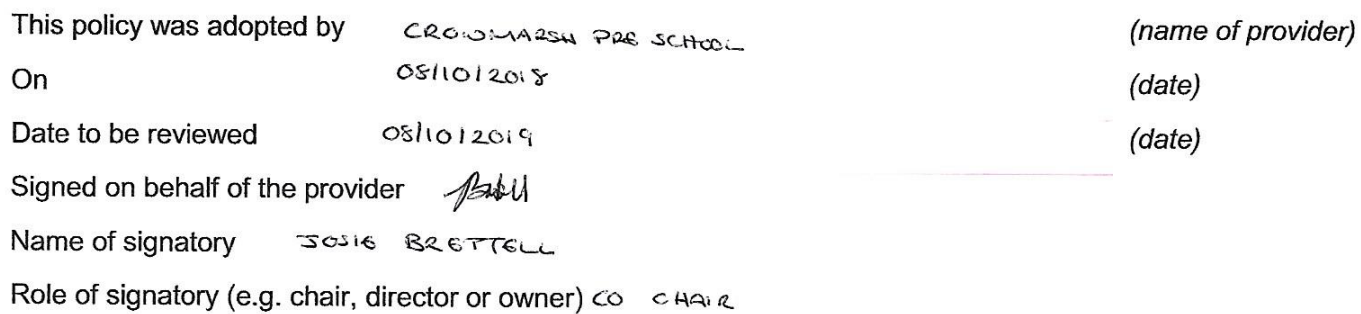 This policy was adopted by CROWMARSH PRE SCHOOL (name of provider)
On 08/10/2018 (date)
Date to be reviewed 08/10/2019 (date)
Signed on behalf of the provider
Name of signatory JOSIE BRETTELL
Role of signatory (e.g. chair, director or owner) CO CHAIR